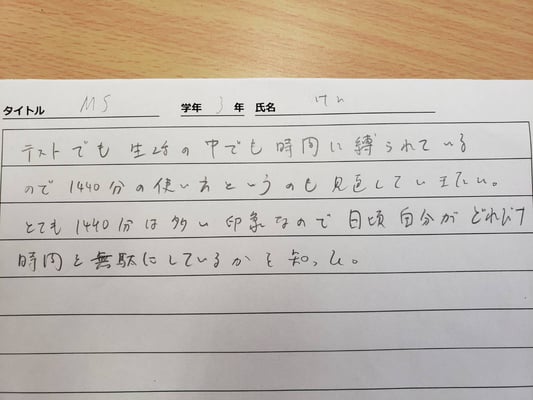 タイトル MS 学年 3 年 氏名 けん
テストでも 生活の 中でも 時間に 縛られている
ので 1440分の使い方というのも 見直していきたい。
とても1440分は多い印象なので 日頃 自分が どれだけ
時間を無駄にしているかを知った。